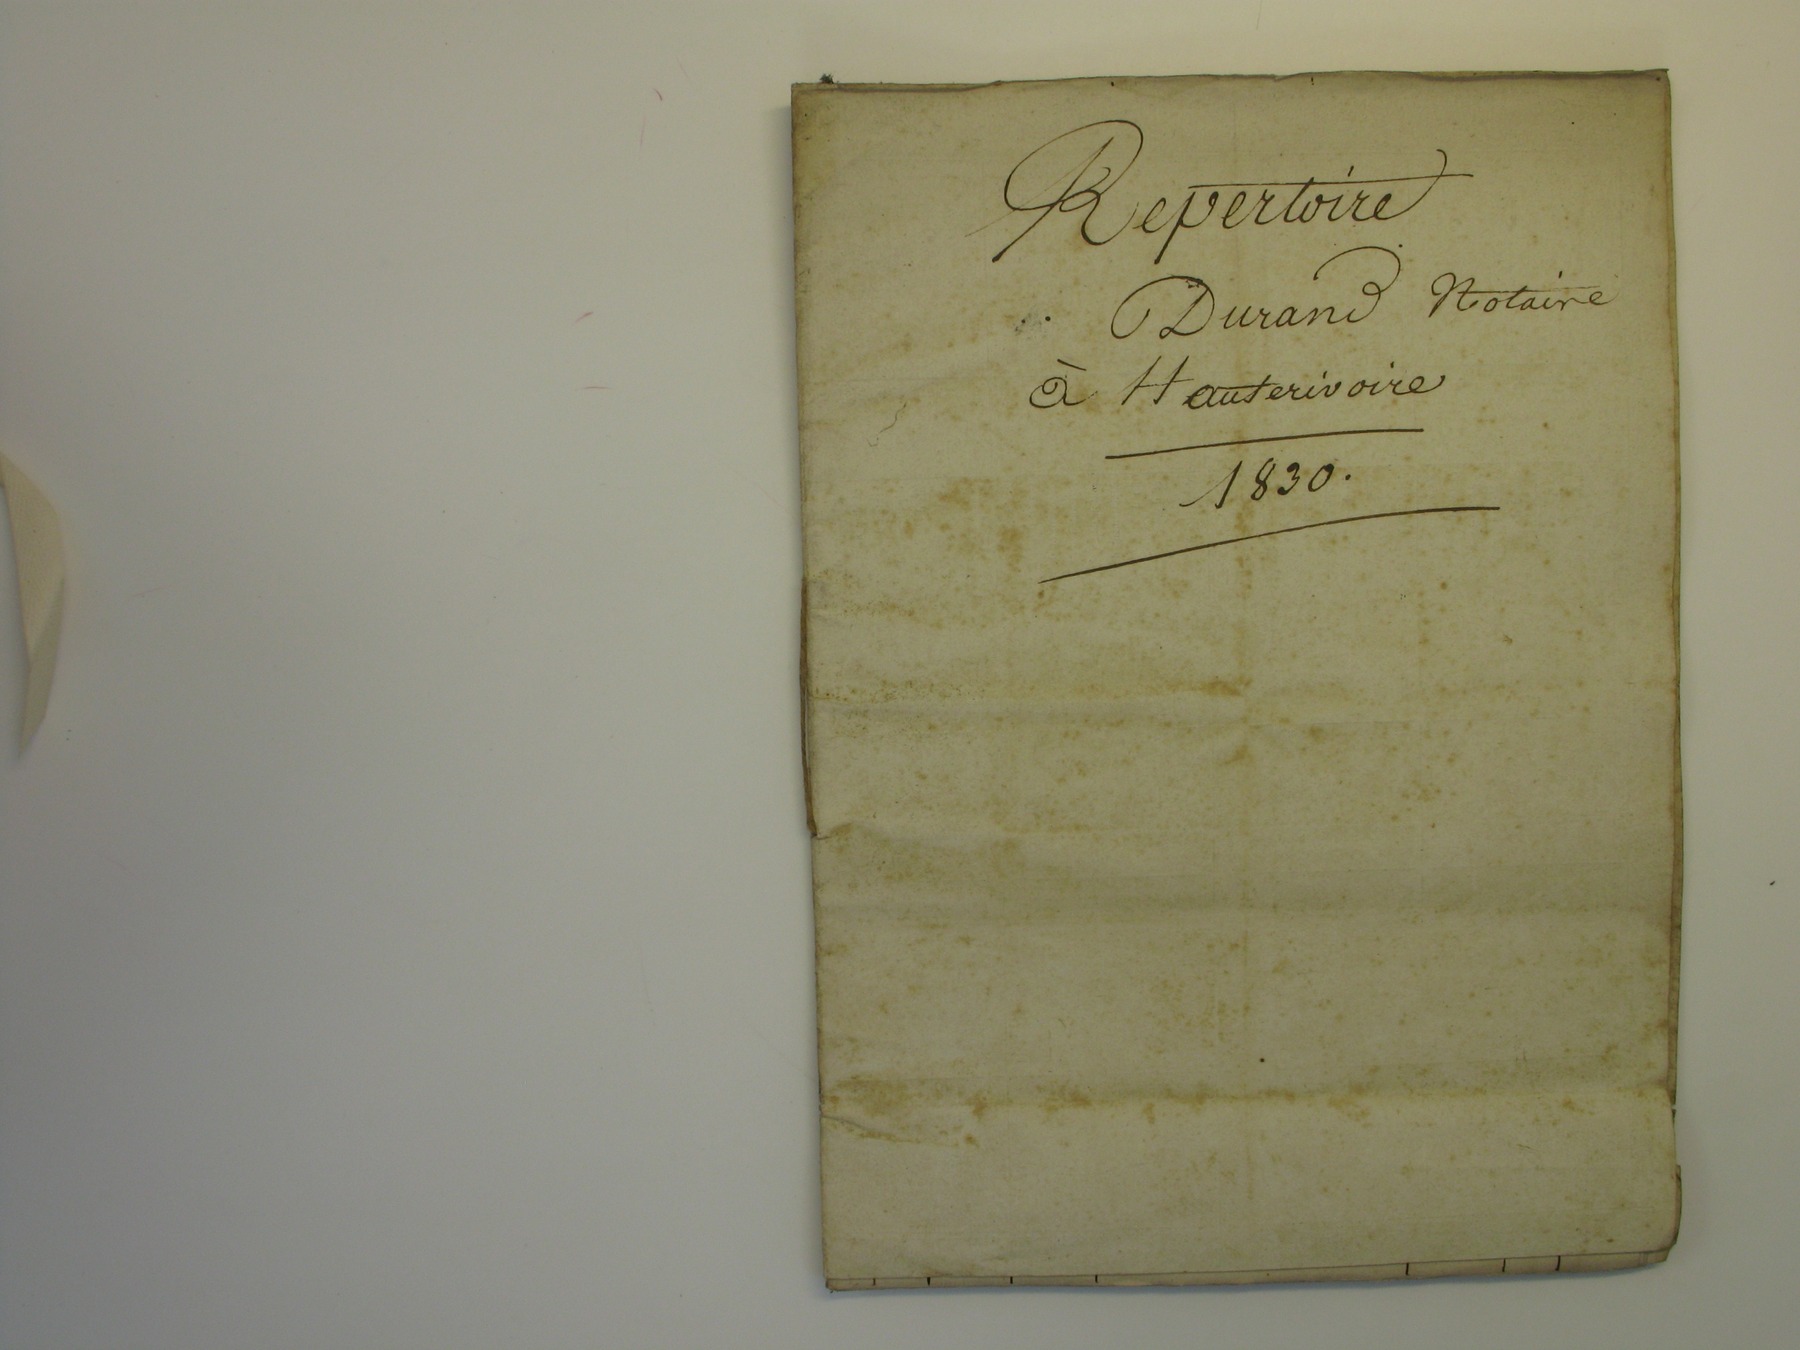 Repertoire
Durand Notaire
à Hauterivoire
1830.